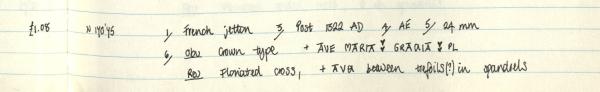 £1.08 N 140'45 1, French jetton 3, Post 1322 AD 4, AE 5, 24 mm
6, Obv Crown type + AVE MARIA : GRACIA : PL
Rev Floriated cross, + AVG between trefoils(?) in spandrels